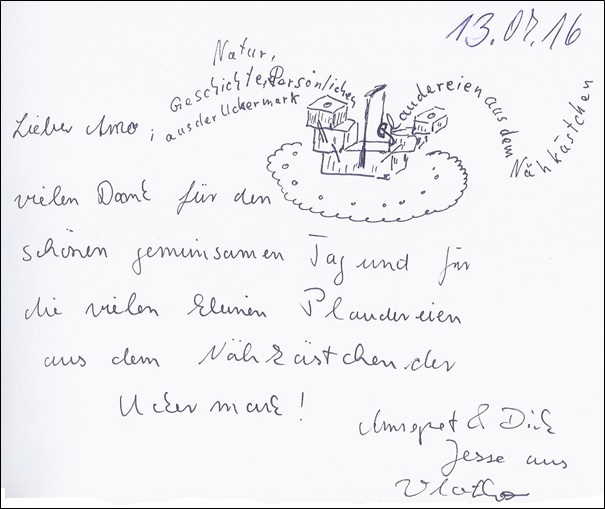 13.07.16
Natur,
Geschichte, Persönliches
aus der Uckermark
Plaudereien aus dem
Nähkästchen
Lieber Arno,
vielen Dank für den
schönen gemeinsamen Tag und für
die vielen kleinen Plaudereien
aus dem Nähkästchen der
Uckermark!
Annegret & Dirk
Jesse aus
Vlotho